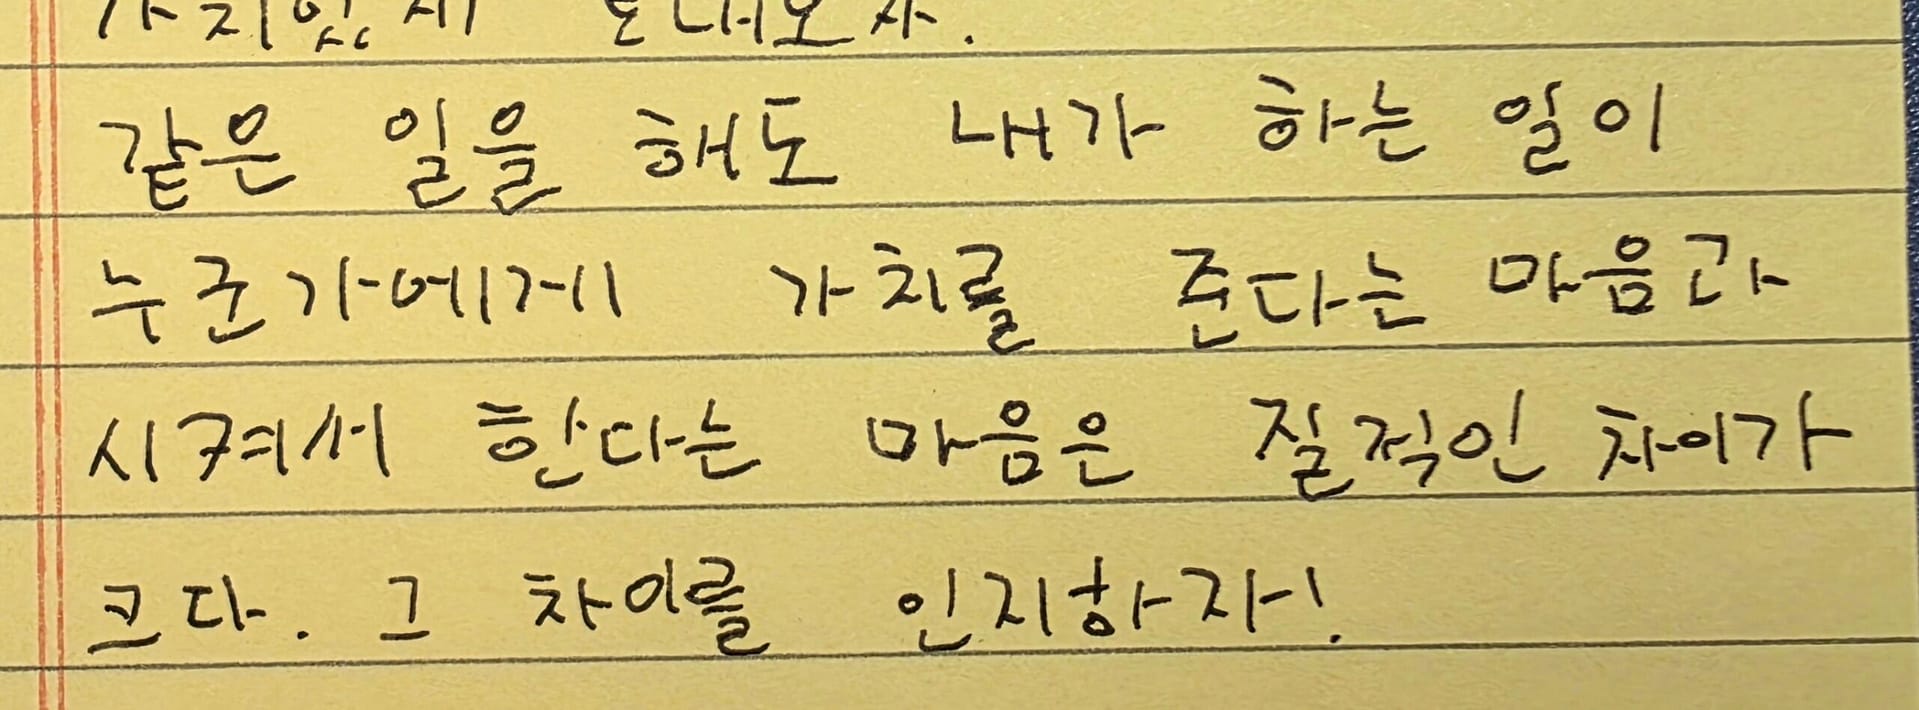 가치있게 보내보자.
같은 일을 해도 내가 하는 일이
누군가에게 가치를 준다는 마음과
시켜서 한다는 마음은 질적인 차이가
크다. 그 차이를 인지하자!